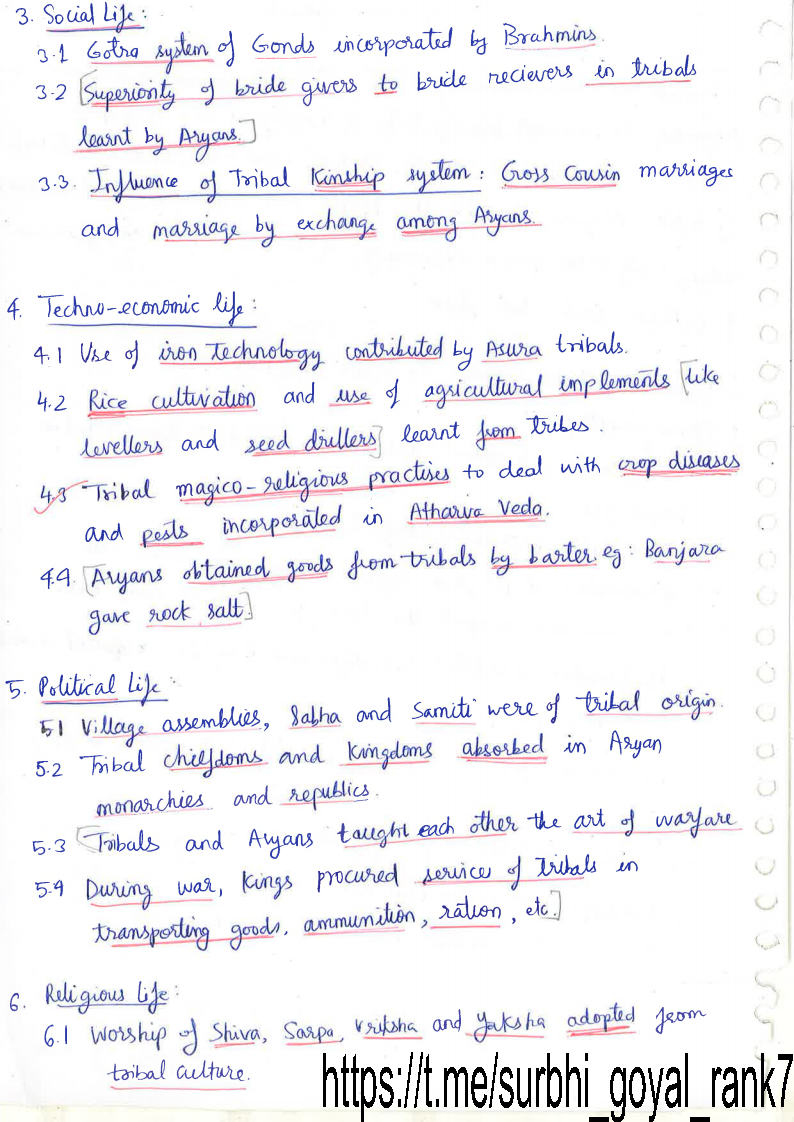 3. Social Life:
3.1 Gotra system of Gonds incorporated by Brahmins.
3.2 [Superiority of bride givers to bride recievers in tribals
learnt by Aryans.]
3.3. Influence of Tribal Kinship system: Cross Cousin marriages
and marriage by exchange among Aryans.
4. Techno-economic life:
4.1 Use of iron technology contributed by Asura tribals.
4.2 Rice cultivation and use of agricultural implements [like
levellers and seed drillers] learnt from tribes.
4.3 Tribal magico-religious practises to deal with crop diseases
and pests incorporated in Atharva Veda.
4.4. [Aryans obtained goods from tribals by barter. eg: Banjara
gave rock salt.]
5. Political Life:
5.1 Village assemblies, Sabha and Samiti were of tribal origin.
5.2 Tribal chiefdoms and Kingdoms absorbed in Aryan
monarchies and republics.
5.3 [Tribals and Aryans taught each other the art of warfare
5.4 During war, kings procured service of tribals in
transporting goods, ammunition, ration, etc.]
6. Religious Life:
6.1 Worship of Shiva, Sarpa, Vriksha and Yaksha adopted from
tribal culture.
https://t.me/surbhi_goyal_rank7